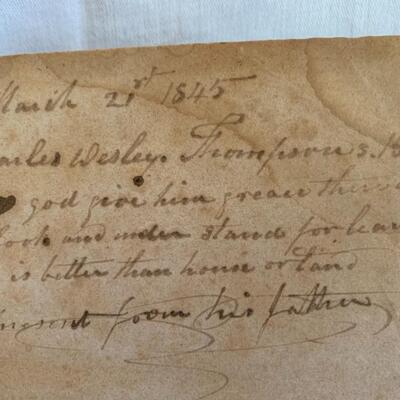 March 21rst 1845
arles Wesley. Thompson s. B
god give him greace there
look and under stand for lear
is better than house or land
present from his father